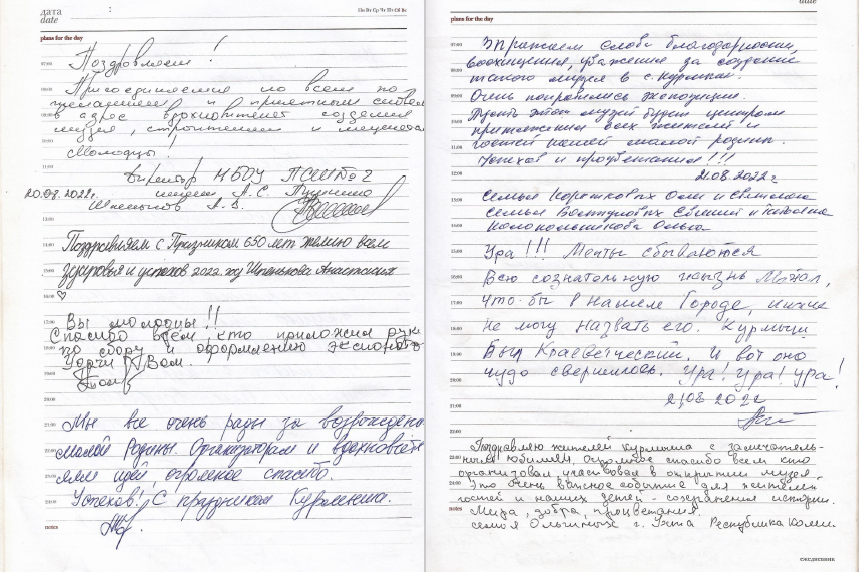 дата
date
Пн Вт Ср Чт Пт Сб Вс
plans for the day
Поздравляем!
Присоединяемся ко всем по
желаниям и приятным словам
в адрес вдохновителей создания
музея, строителям и меценатам
Молодцы!
Директор МБОУ ПСШ № 2
20.08.2022г. имени А.С. Пушкина
А.В.
Поздравляем с Праздником 650 лет желаю всем
здоровья и успехов 2022 год Шпенькова Анастасия
♡
Вы молодцы!!
Спасибо всем, кто приложил руку
по сбору и оформлению экспонатов
Удачи Вам.
Мы все очень рады за возрождение
малой Родины. Организаторам и вдохновите
лям идей, огромное спасибо.
Успехов! С праздником Курмыша.
notes
date
plans for the day
Выражаем слова благодарности,
восхищения, уважения за создание
такого музея в с. Курмыш.
Очень понравились экспозиции.
Пусть этот музей будет центром
притяжения всех жителей и
гостей нашей малой родины.
Успехов и процветания!!!
21.08.2022г
Семья Коротковых Оли и Светлана
семья Евгений и Татьяна
Колокольникова Ольга
Ура!!! Мечты сбываются
Всю сознательную жизнь Мечтал,
что бы в нашем Городе, иначе
не могу назвать его. Курмыш
Был Краеведческий. И вот оно
чудо свершилось. Ура! Ура! Ура!
21,08 2022
Поздравляю жителей Курмыша с замечатель-
ным юбилеем, огромное спасибо всем кто
организовал, участвовал в открытии музея
Это очень важное событие для жителей
гостей и наших детей - сохранения истории.
Мира, добра, процветания.
семья Ольгиных г. Ухта Республика Коми.
notes
ежедневник